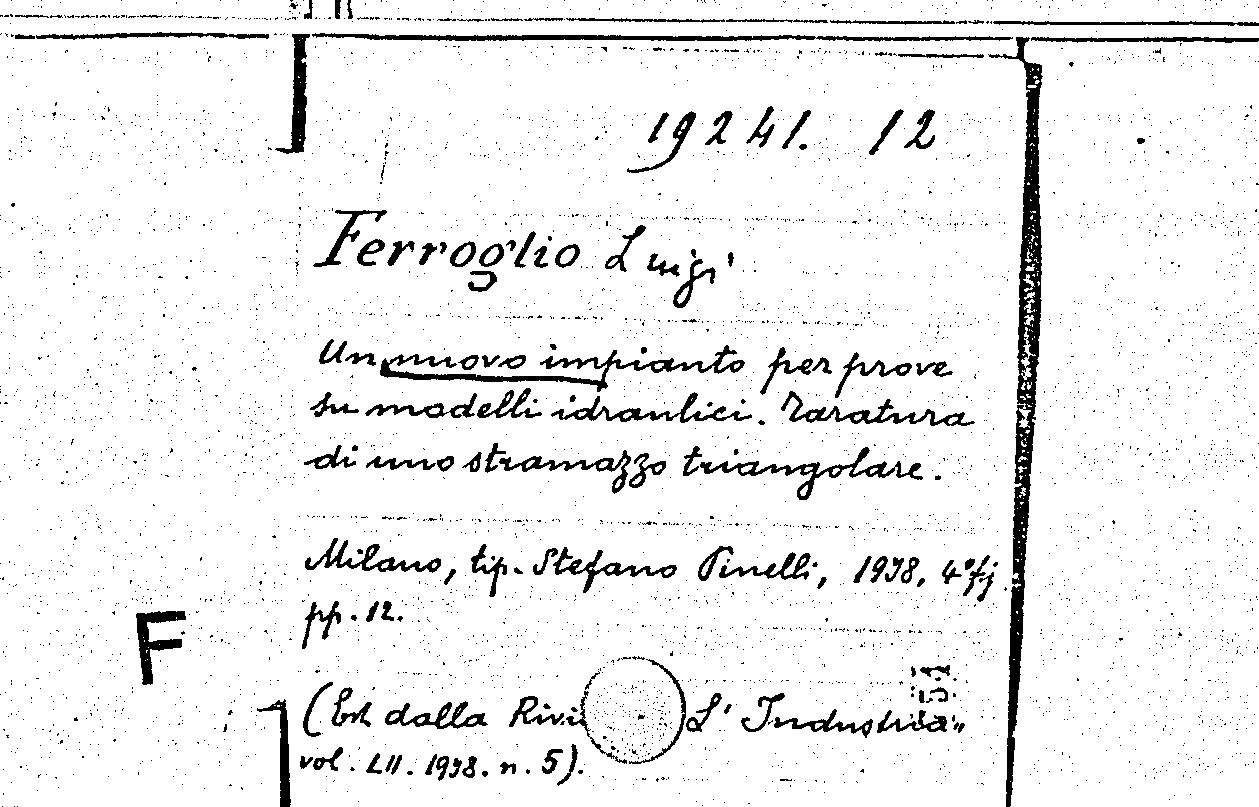 19241. 12
Ferroglio Luigi
Un nuovo impianto per prove
su modelli idraulici. Taratura
di uno stramazzo triangolare.
Milano, tip. Stefano Pinelli, 1938, 4° fig
pp. 12.
F
(Est. dalla Rivi L'Industria"
vol. LII. 1938. n. 5).